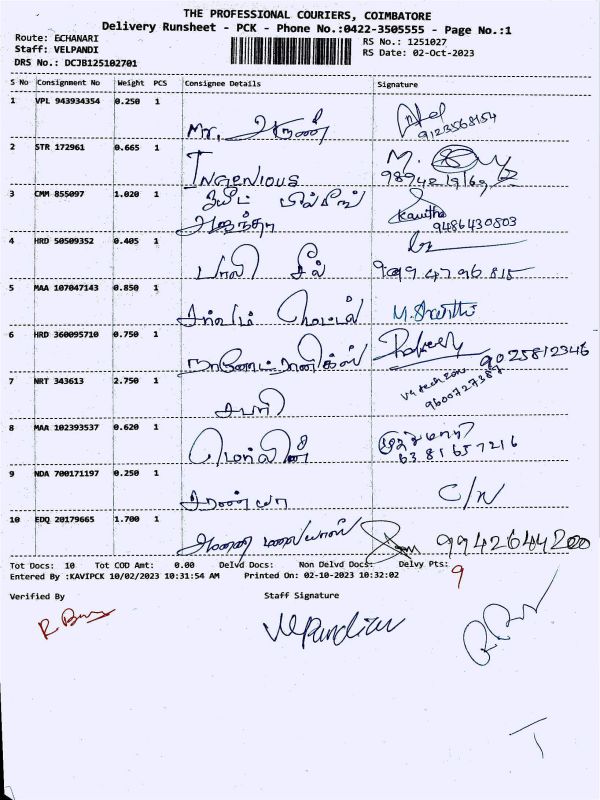 THE PROFESSIONAL COURIERS, COIMBATORE
Delivery Runsheet - PCK - Phone No.:0422-3505555 - Page No.:1
Route: ECHANARI
RS No.: 1251027
Staff: VELPANDI
RS Date: 02-Oct-2023
DRS No.: DCJB125102701
S No Consignment No Weight PCS Consignee Details Signature
1 VPL 943934354 0.250 1
Mr. அருண்
9123568154
2 STR 172961 0.665 1
INGENIOUS
M.
3 CMM 855097 1.020 1
அஜந்தா
Kavitha
9486430803
4 HRD 50509352 0.405 1
பாலி சீல்
5 MAA 107047143 0.850 1
மெட்டல்
M. Shanthi
6 HRD 360095710 0.750 1
Rakesh
9025812346
7 NRT 343613 2.750 1
சபரி
V4 tech zone
9600727387
8 MAA 102393537 0.620 1
மெர்லின்
6381657216
9 NDA 700171197 0.250 1
சரண்யா
C/N
10 EDQ 20179665 1.700 1
அன்னை
9942644200
Tot Docs: 10 Tot COD Amt: 0.00 Delvd Docs: Non Delvd Docs: Delvy Pts:
9
Entered By :KAVIPCK 10/02/2023 10:31:54 AM Printed On: 02-10-2023 10:32:02
Verified By Staff Signature
Velpandian